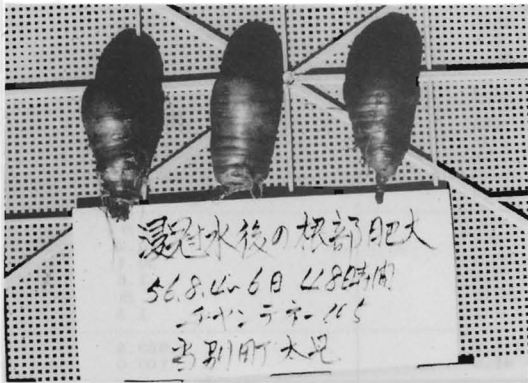 浸冠水後の根部肥大
56.8.4〜6日 48時間
チャンテネー
当別町太